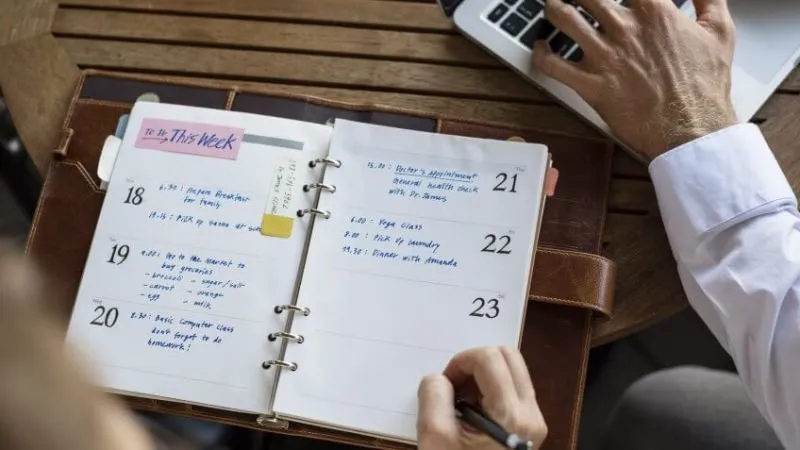 To Do This Week
18
6.30 : Prepare Breakfast
for family
Pick up
19
Go to the market to
buy groceries
- broccoli - sugar/salt
- carrot - orange
- egg - milk
20
8.30 : Basic Computer Class
don't forget to do
homework!
21
15.00 : Doctor's appointment
General health check
with Dr. James
22
6.00 : Yoga Class
8.00 : Pick Up Laundry
19.30 : Dinner with Amanda
23